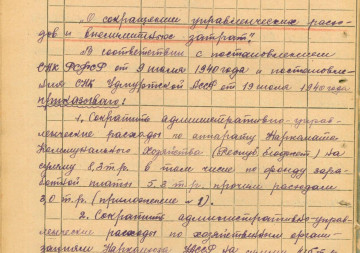 "О сокращении управленческих расхо-
дов и внелимитных затрат"
В соответствии с постановлением
СНК РСФСР от 9 июля 1940 года и постановле-
ния СНК Удмуртской АССР от 19 июля 1940 года
приказываю:
1. Сократить административно-управ-
ленческие расходы по аппарату Наркомата
Коммунального Хозяйства (Республ. бюджет) на
сумму 8,3 т.р. в том числе по фонду зара-
ботной платы 5.3 т.р. прочим расходам
3,0 т.р. (приложение №1).
2. Сократить административно-управ-
ленческие расходы по хозяйственным органи-
зациям Наркомхоза УАССР на сумму